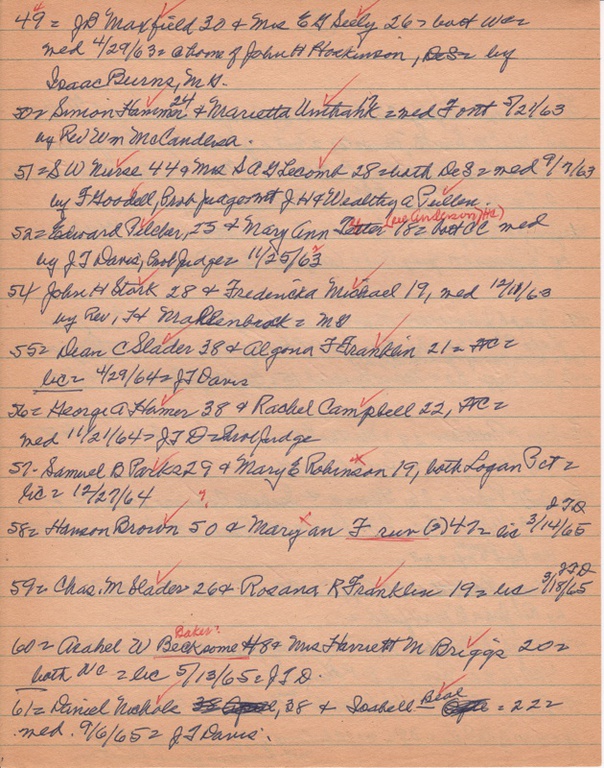 49 = J B Maxfield 30 & Mrs E G Seely 26 = both Wa =
med 4/29/63 = @ home of John H Hockinson, DeS = by
Isaac Burns, MG.
50 = Simon Hammer 24 & Marietta 17 = med Font 5/21/63
by Rev Wm McCandless.
51 = S W Nurse 44 & Mrs S A G Lecomb 28 = both DeS = med 9/7/63
by F Goodell, Prob judge = wit J H & Wealthy A Pullen.
52 = Edward Pilcher, 25 & Mary Ann (Anderson) 18 = both AC med
by J T Davis, Prob Judge = 11/25/63
54 John H Stork 28 & Fredericka Michael 19, med 12/11/63
by Rev, F H = MG
55 = Dean C Slader 38 & Algona F Franklin 21 = FC =
lic = 4/29/64 = J T Davis
56 = George A Hamer 38 & Rachel Campbell 22, FC =
med 11/21/64 = J T D = Prob Judge
57 - Samuel B Parks 29 & Mary E Robinson 19, both Logan Pct =
lic = 12/27/64
?
58 = Hanson Brown 50 & Maryan F run (?) 47 = lic 3/14/65 J T D
59 = Chas. M Slader 26 & Rosana R Franklin 19 = lic 3/18/65 J T D
Baker?
60 = Asahel W Becksome 48 & Mrs Harriett M Briggs 20 =
both NC = lic 5/13/65 = J T D.
61 = Daniel Nichols 38 & Isabell Beal = 22 =
med. 9/6/65 = J T Davis.